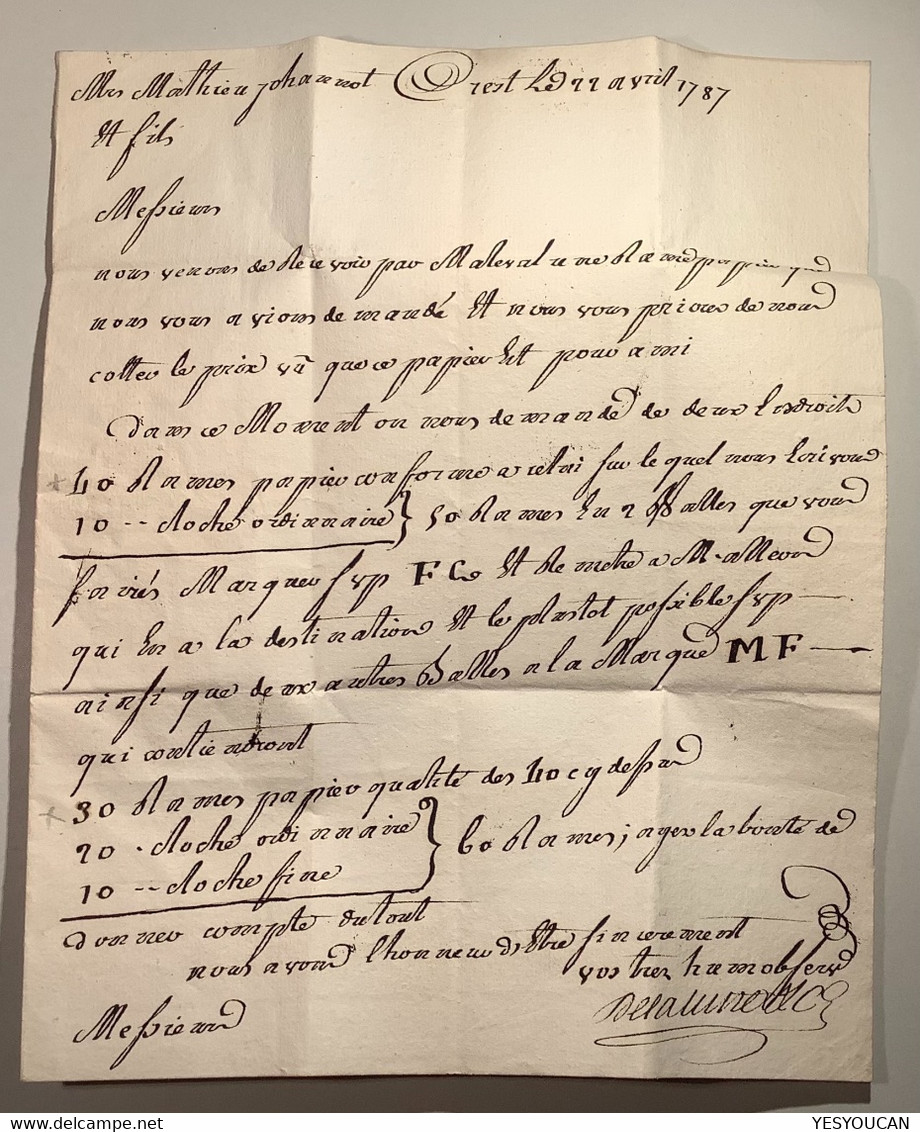 Mrs Mathieu johannot Crest Le 22 avril 1787
Et fils
Messieurs
nous venons de Recevoir par Maleval une Rame papier que
nous vous avions demandé Et nous vous prions de nous
cotter le prix vû que ce papier Est pour ami
Dans ce Moment on nous demande de deux Endroits
40 Rames papier conforme a celui sur lequel nous Ecrivons
10 -- cloche ordinnaire } 50 Rames En 2 Balles que vous
fairés Marquer svp FC Et Remetre a M. alleond
qui En a la destination Et le plustot possible svp —
ainsi que deux autres Balles a la Marque MF —
qui contiendront
30 Rames papier qualité des 40 cy dessus
20 - cloche ordinnaire } 60 Rames; ayez la bonté de
10 -- cloche fine
donner compte du tout
nous avons l'honneur d'Etre sincerement
vos tres hum obser
Messieurs
Delalune & C
YESYOUCAN